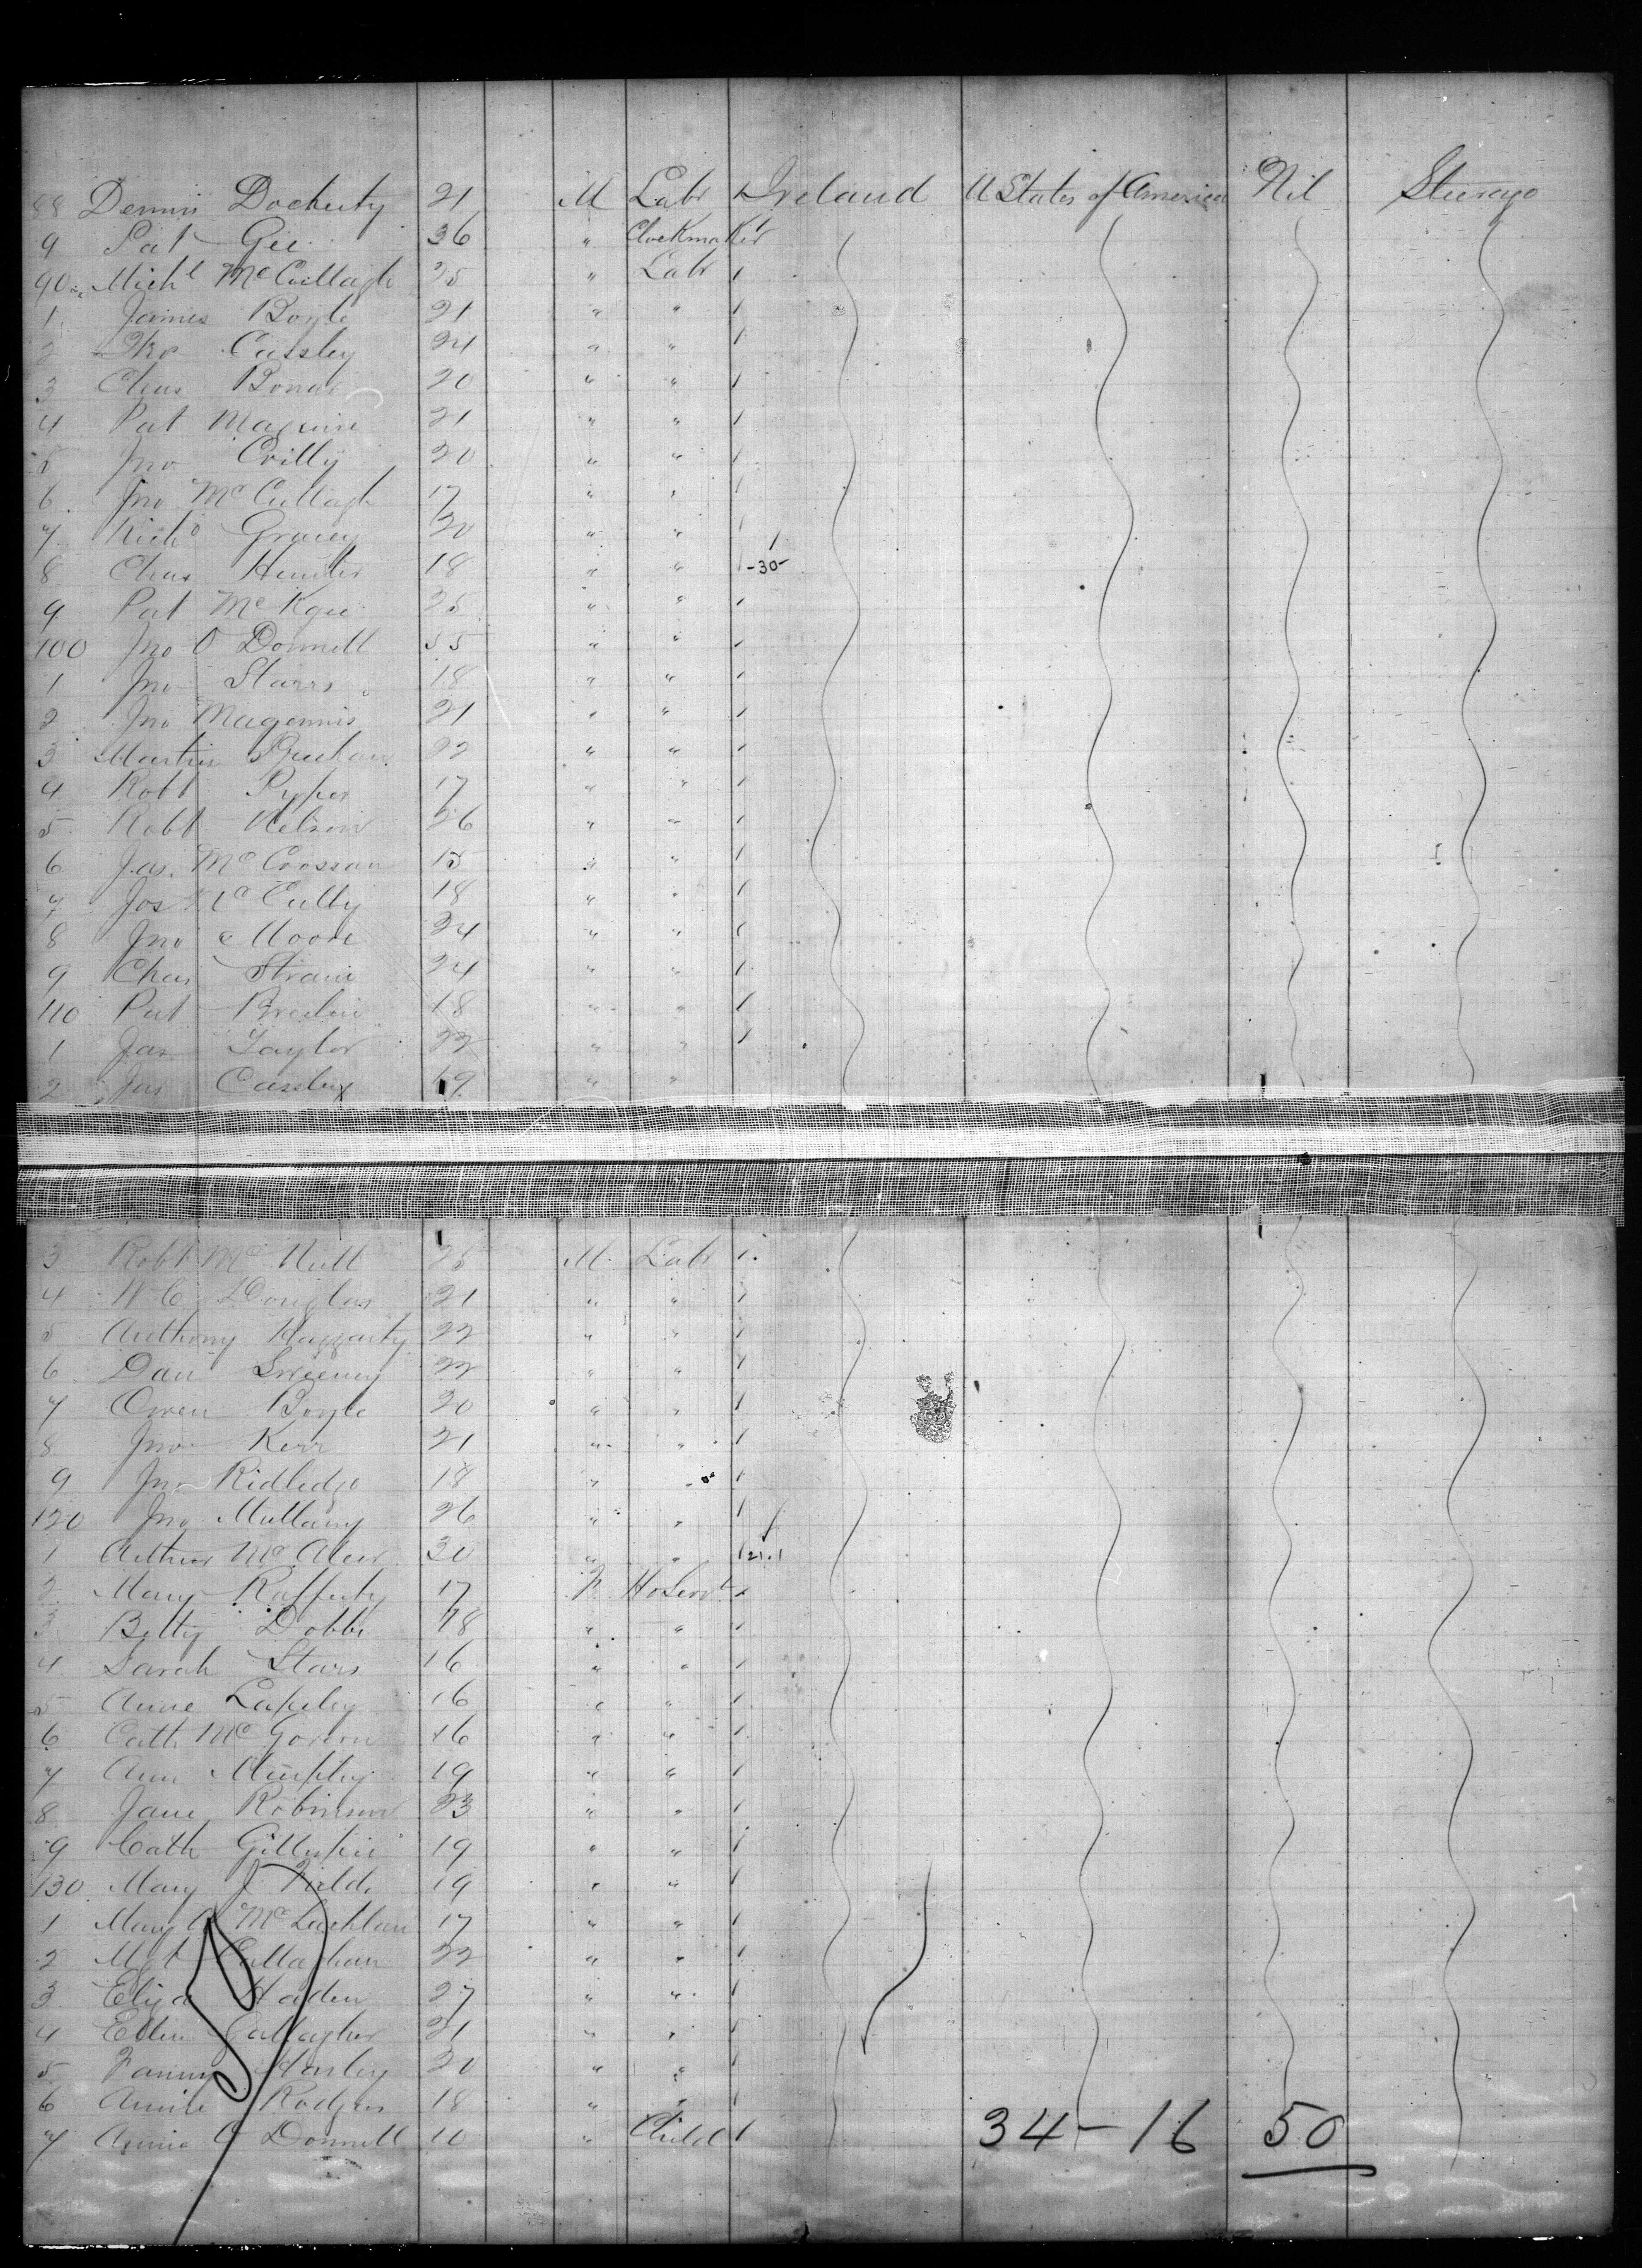 88 Dennis Docherty 21 M Labr Ireland U States of America Nil Steerage
9 Pat Gee 36 " Clockmaker
90 Michl McCullagh 25 " Labr /
1 James Boyle 21 " " /
2 Tho Cassley 24 " " /
3 Chas Bonar 20 " " /
4 Pat Maguire 21 " " /
5 Jno Crilly 20 " " /
6 Jno McCullagh 17 " " /
7 Richd Gracey 20 " " /
8 Chas Hunter 18 " " / -30-
9 Pat McKgee 25 " " /
100 Jno O Donnell 55 " " /
1 Jno Starrs 18 " " /
2 Jno Magennis 21 " " /
3 Martin 22 " " /
4 Robt Pyper 17 " " /
5 Robt Nelson 26 " " /
6 Jas. McCrossan 15 " " /
7 Jos 18 " " /
8 Jno Moore 24 " " /
9 Chas Strain 24 " " /
110 Pat Breslin 18 " " /
1 Jas Taylor 22 " " /
2 Jas Cassley 19 " "
3 Robt McNeill 25 M. Labr /
4 W C Douglas 21 " " /
5 Anthony Haggarty 22 " " /
6 Dan Sweeney 22 " " /
7 Owen Boyle 20 " " /
8 Jno Kerr 21 " " /
9 Jno Ridledge 18 " " /
120 Jno Mullany 26 " " /
1 Arthur McAleer 30 " " / 21.1
2 Mary Rafferty 17 F. HoServt /
3 Betty Dobbs 18 " " /
4 Sarah Stars 16 " " /
5 Anne Lapsley 16 " " /
6 Cath McGovern 16 " " /
7 Ann Murphy 19 " " /
8 Jane Robinson 23 " " /
9 Cath Gillespie 19 " " /
130 Mary J Fields 19 " " /
1 Mary A McLachlan 17 " " /
2 Mgt Callaghan 22 " " /
3 Eliza Haden 27 " " /
4 Ellen Gallagher 21 " " /
5 Fanny Harley 20 " " /
6 Annie Rodgers 18 " " /
7 Annie O Donnell 10 " Child /
34 - 16 50